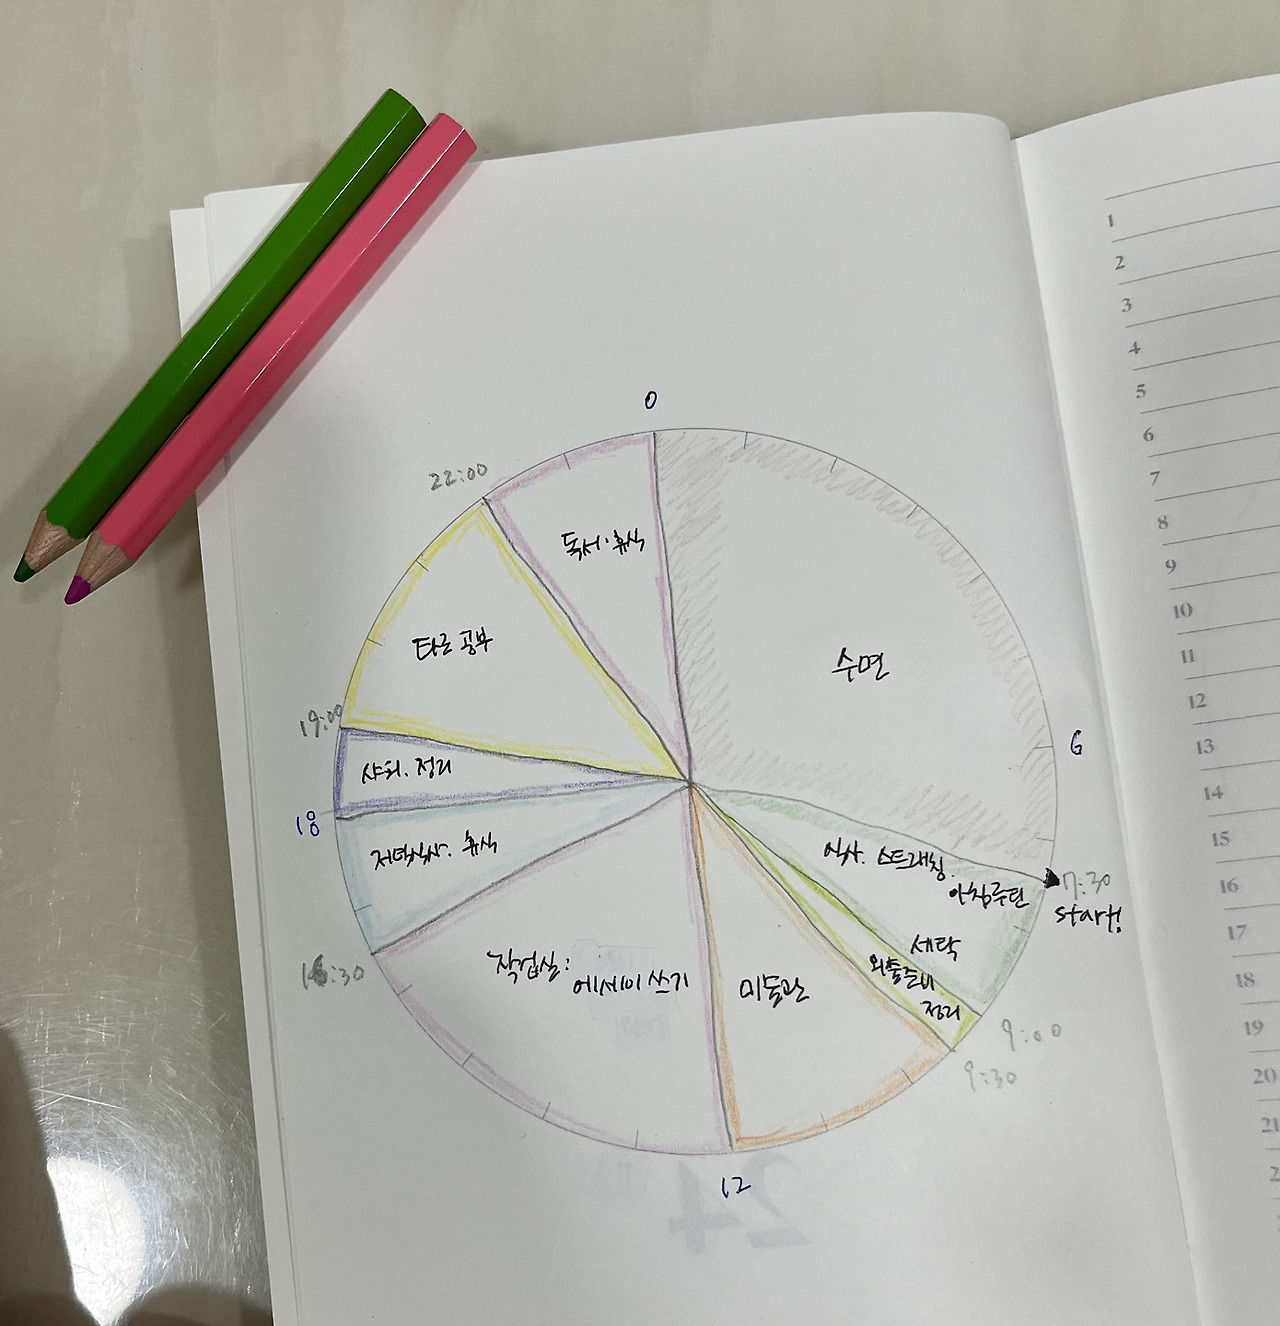 0
22:00
독서·휴식
타로 공부
수면
19:00
샤워. 정리
6
18
저녁식사. 휴식
식사. 스트레칭.
아침루틴
7:30
start!
세탁
외출준비
정리
16:30
작업실:
에세이 쓰기
미술관
9:00
9:30
12
24
1
2
3
4
5
6
7
8
9
10
11
12
13
14
15
16
17
18
19
20
21